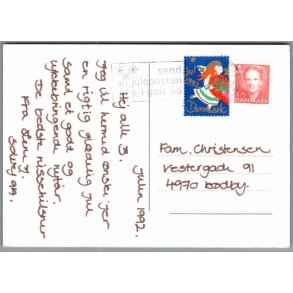 Julen 1992.
Hej alle 3.
Jeg vil hermed ønske jer
en rigtig glædelig jul
samt et godt og
lykkebringende nytår.
De bedste nissehilsner
Fra
send
juleposten
i god tid
Jul
1992
Danmark
DANMARK
Fam. Christensen
Vestergade 91
4970 Rødby.